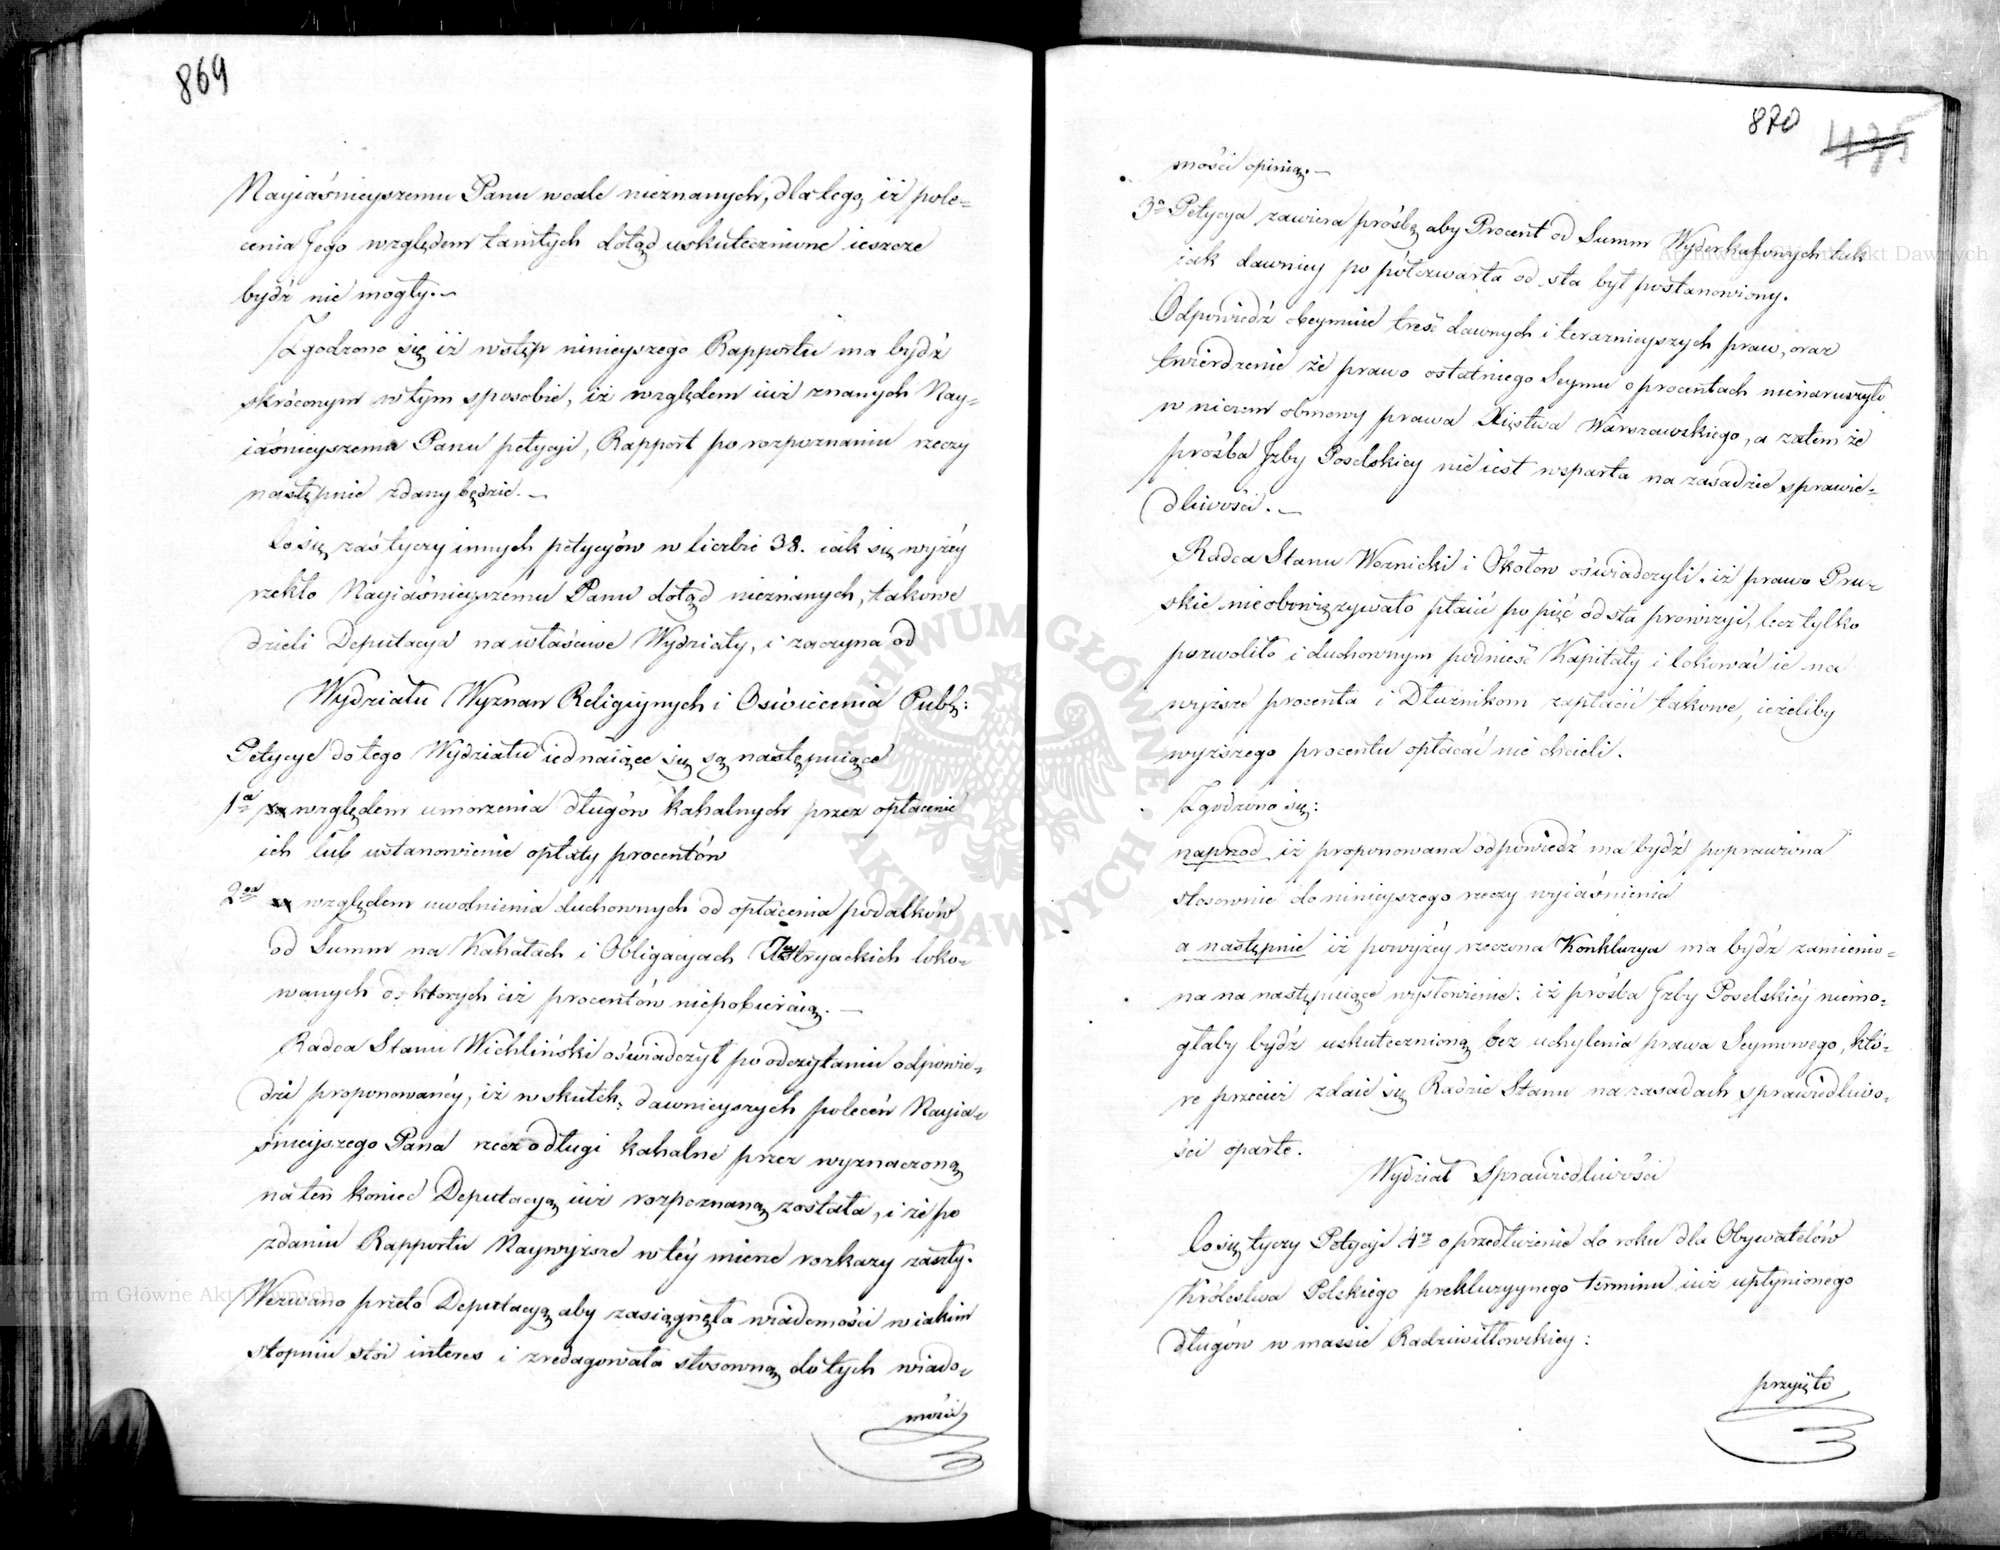 869
Nayiaśnieyszemu Panu wcale nieznanych, dla tego, iż pole-
cenia Jego względem tamtych dotąd uskutecznione ieszcze
bydź nie mogły.—
Zgodzono się iż wstęp ninieyszego Rapportu ma bydź
skróconym w tym sposobie, iż względem iuż znanych Nay-
iaśnieyszemu Panu petycji, Rapport po rozpoznaniu rzeczy
następnie zdany będzie.—
Co się zaś tyczy innych petycyów w liczbie 38. iak się wyżey
rzekło Nayiaśnieyszemu Panu dotąd nieznanych, takowe
dzieli Deputacya na właściwe Wydziały, i zaczyna od
Wydziału Wyznań Religiynych i Oświecenia Publ:
Petycye do tego Wydziału iednaiące się są następuiące
1a względem umorzenia długów kahalnych przez opłacenie
ich lub ustanowienie opłaty procentów
2ga względem uwolnienia duchownych od opłacenia podatków
od Summ na Kahałach i Obligacyach Austryackich loko-
wanych od ktorych iuż procentów niepobieraią.—
Radca Stanu Wichliński oświadczył po odczytaniu odpowie-
dzi proponowaney, iż w skutek dawnieyszych poleceń Nayia-
śnieyszego Pana rzecz o długi kahalne przez wyznaczoną
na ten koniec Deputacyą iuż rozpoznaną została, i że po
zdaniu Rapportu Naywyższe w tey mierze rozkazy zaszły.
Wezwano przeto Deputacyą aby zasiągnęła wiadomości w iakim
stopniu stoi interes i zredagowała stosowną do tych wiado-
mości
870
435
mości opinią.—
3a Petycya zawiera prośbę aby Procent od Summ Wyderkafowych tak
iak dawniey po półczwarta od sta był postanowiony.
Odpowiedź obeymuie treść dawnych i teraznieyszych praw, oraz
twierdzenie że prawo ostatniego Seymu o procentach nienaruszyło
w niczem obmowy prawa Xięstwa Warszawskiego, a zatem że
prośba Izby Poselskiey nie iest wsparta na zasadzie sprawie-
dliwości.—
Radca Stanu Woznicki i Okołow oświadczyli, iż prawo Pru-
skie nie obowiązywało płacić po pięć od sta prowizyi, lecz tylko
pozwoliło i duchownym podnieść Kapitały i lokować ie na
wyższe procenta i Dłużnikom zapłacić takowe, ieżeliby
wyższego procentu opłacać nie chcieli.
Zgodzono się:
naprzod iż proponowana odpowiedź ma bydź poprawiona
stosownie do ninieyszego rzeczy wyiaśnienia
a następnie iż powyżey rzeczona Konkluzya ma bydź zamienio-
na na następuiące wysłowienie: iż prośba Izby Poselskiéy niemo-
głaby bydź uskutecznioną bez uchylenia prawa Seymowego, któ-
re przecież zdaie się Radzie Stanu na zasadach sprawiedliwo-
ści oparte.
Wydział Sprawiedliwości
Co się tyczy Petycyi 4r o przedłużenie do roku dla Obywatelów
Królestwa Polskiego prekluzyynego terminu iuż upłynionego
długów w massie Radziwiłłowskiey:
przyięto
Archiwum Główne Akt Dawnych
Archiwum Główne Akt Dawnych
ARCHIWUM GŁÓWNE • AKT DAWNYCH •